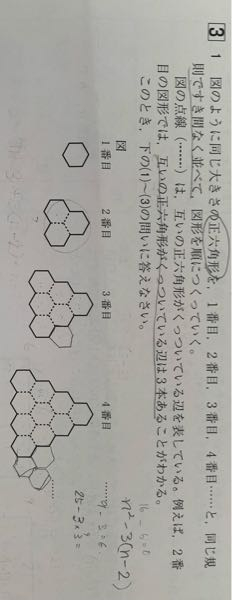 3 1 図のように同じ大きさの正六角形を，1番目，2番目，3番目，4番目……と，同じ規
則ですき間なく並べて，図形を順につくっていく。
図の点線（……）は，互いの正六角形がくっついている辺を表している。例えば，2番
目の図形では，互いの正六角形がくっついている辺は3本あることがわかる。
このとき，下の(1)~(3)の問いに答えなさい。
図
1番目 2番目 3番目 4番目
……
n²-3(n-2)